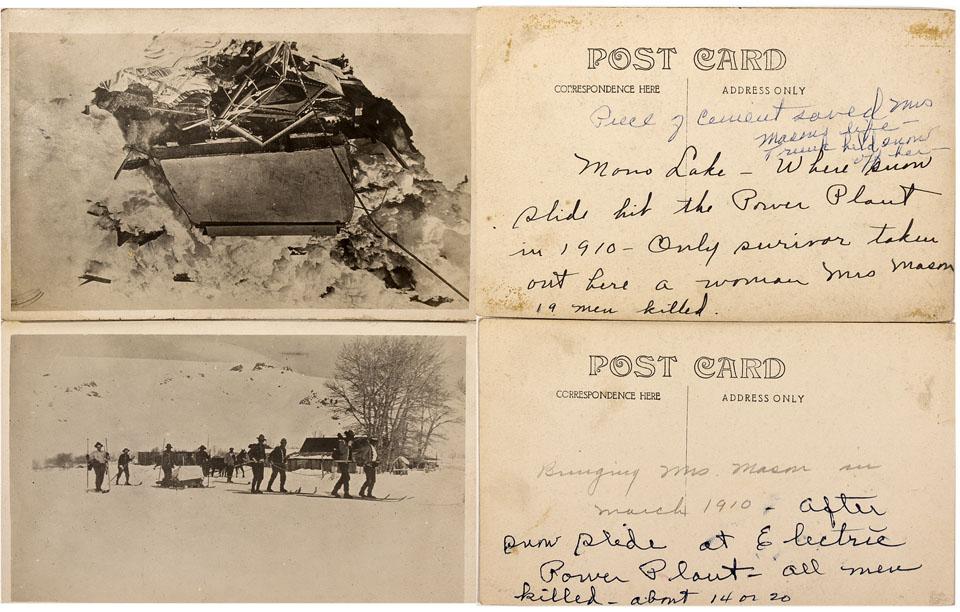 POST CARD
CORRESPONDENCE HERE
ADDRESS ONLY
Piece of cement saved Mrs
Masons life -
Trunk held snow
off her -
Mono Lake - Where snow
slide hit the Power Plant
in 1910 - Only surivor taken
out here a woman Mrs Mason
19 men killed.
POST CARD
CORRESPONDENCE HERE
ADDRESS ONLY
Bringing Mrs. Mason in
March 1910 - After
snow slide at Electric
Power Plant - all men
killed - about 14 or 20